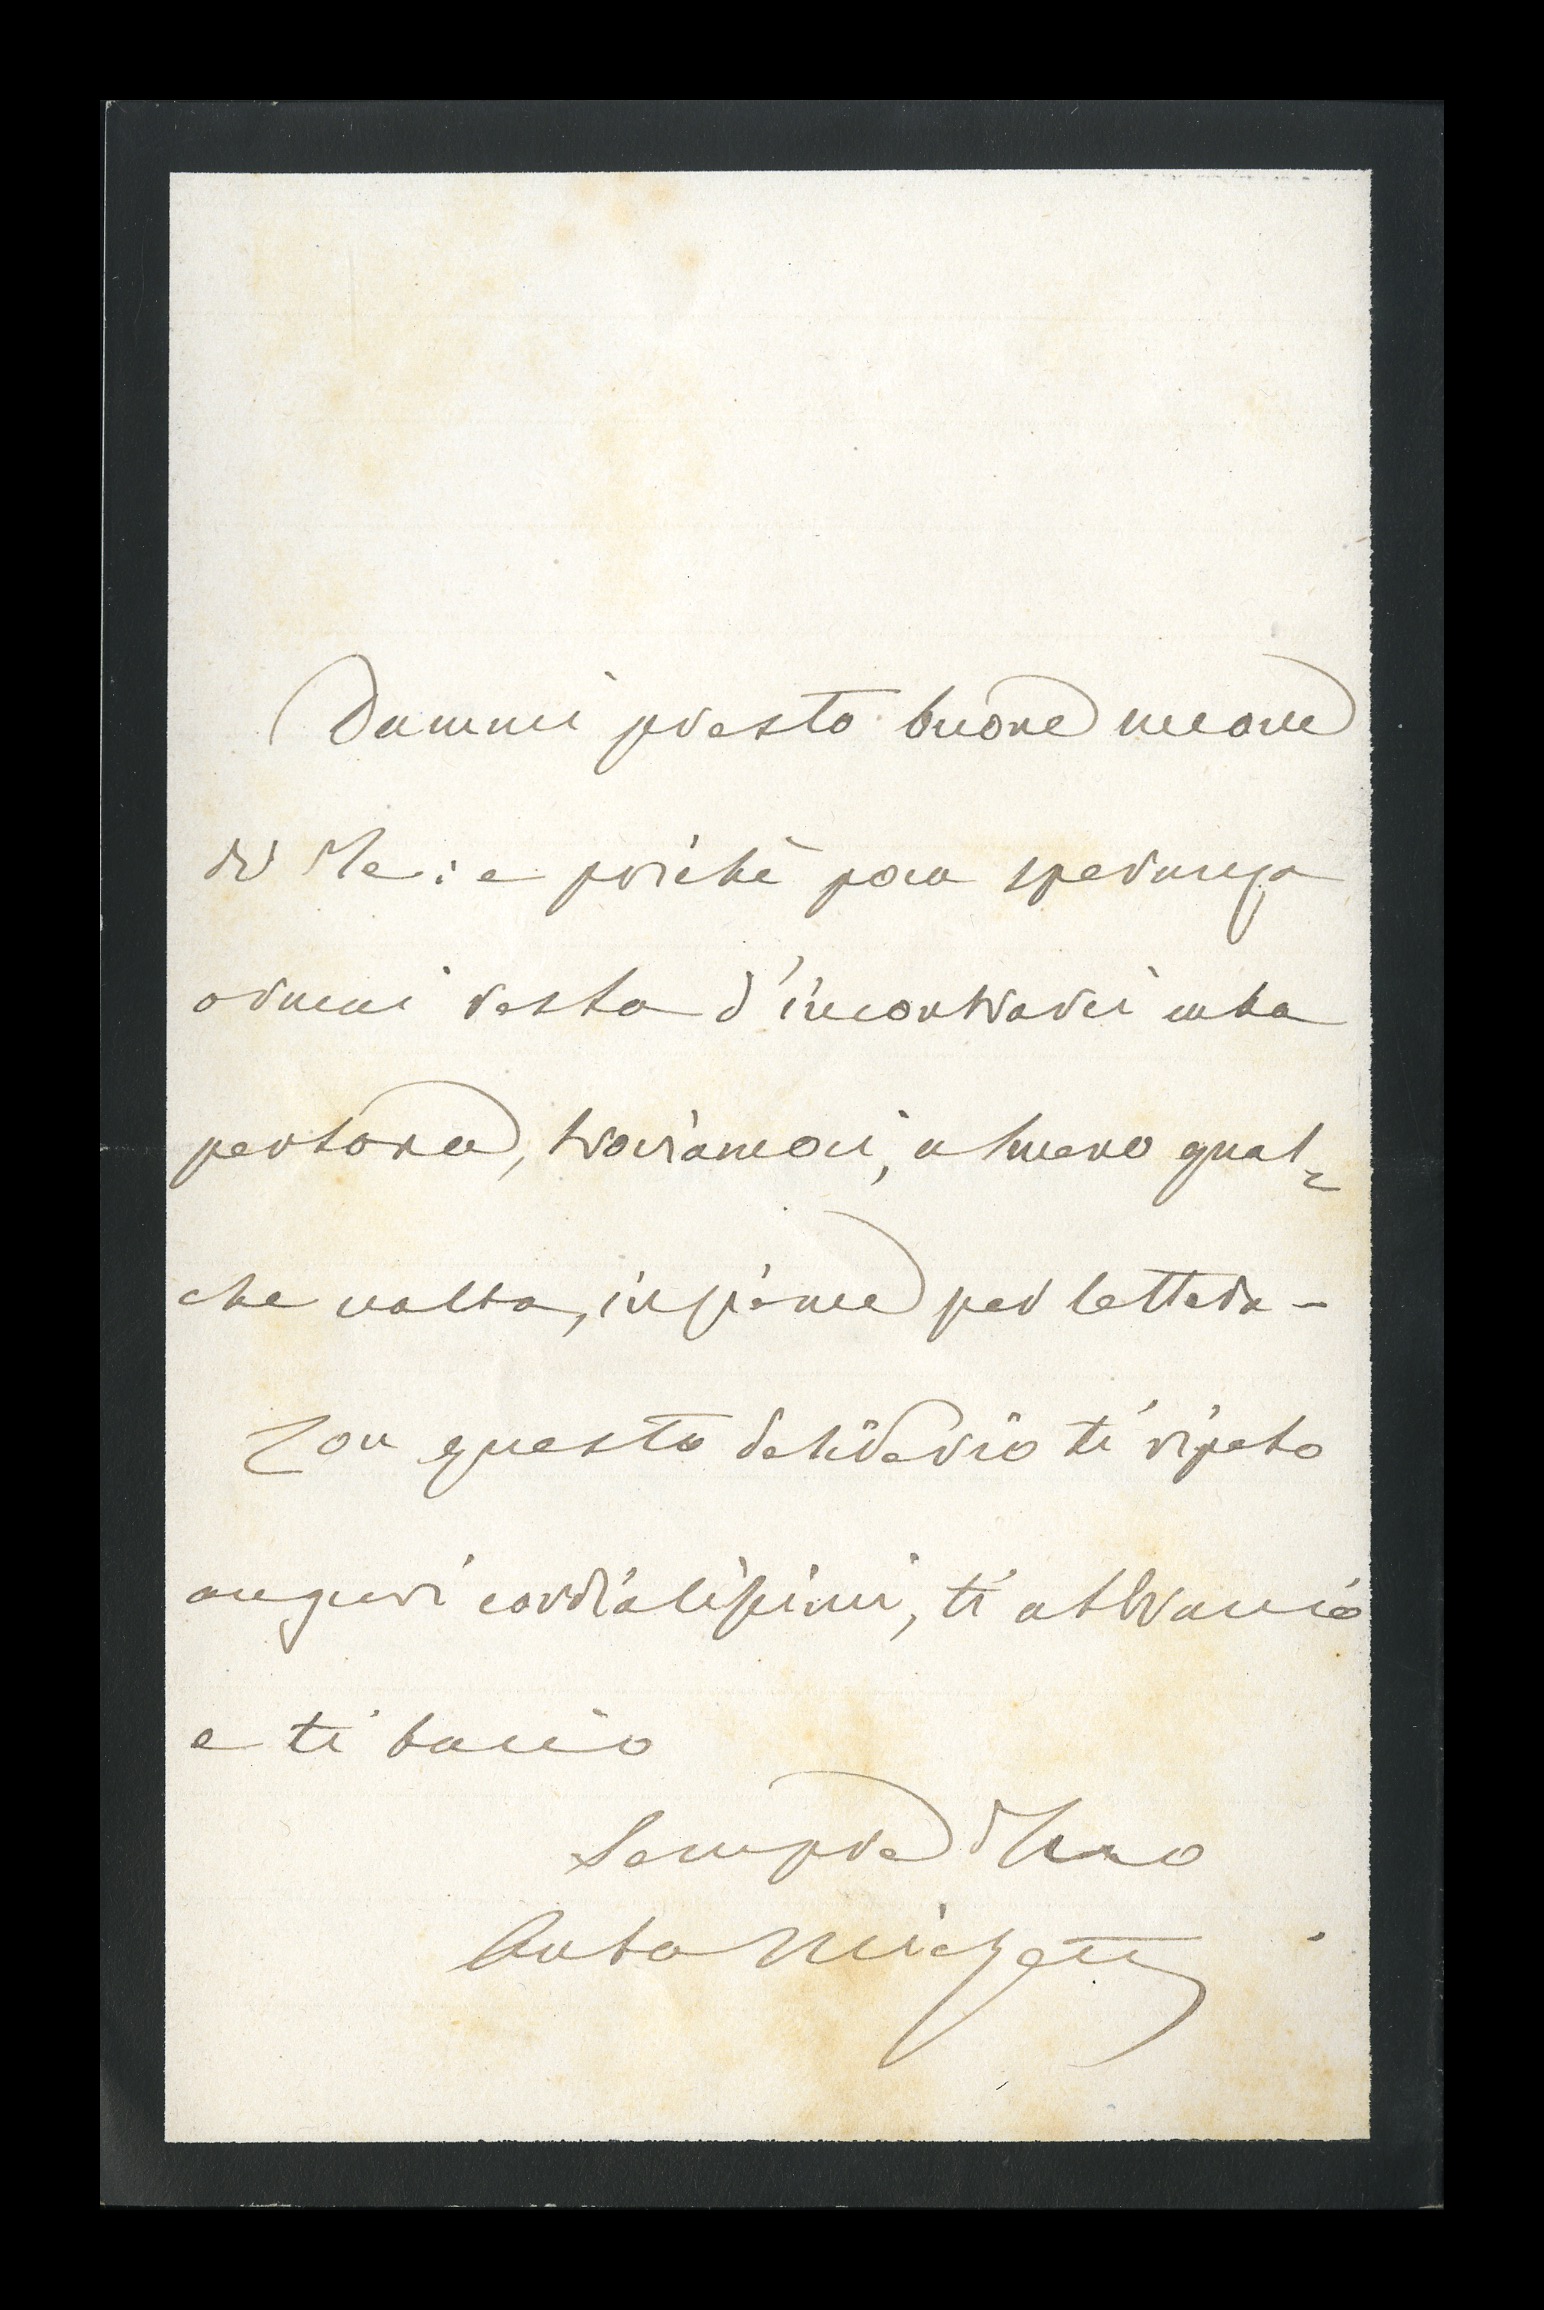 Dammi presto buone nuove
di Te: e poichè poca speranza
oramai resta d'incontrarci in
persona, troviamoci, almeno qual=
che volta, insieme per lettera -
Con questo desiderio ti ripeto
auguri cordialissimi, ti abbraccio
e ti bacio
Sempre Tuo